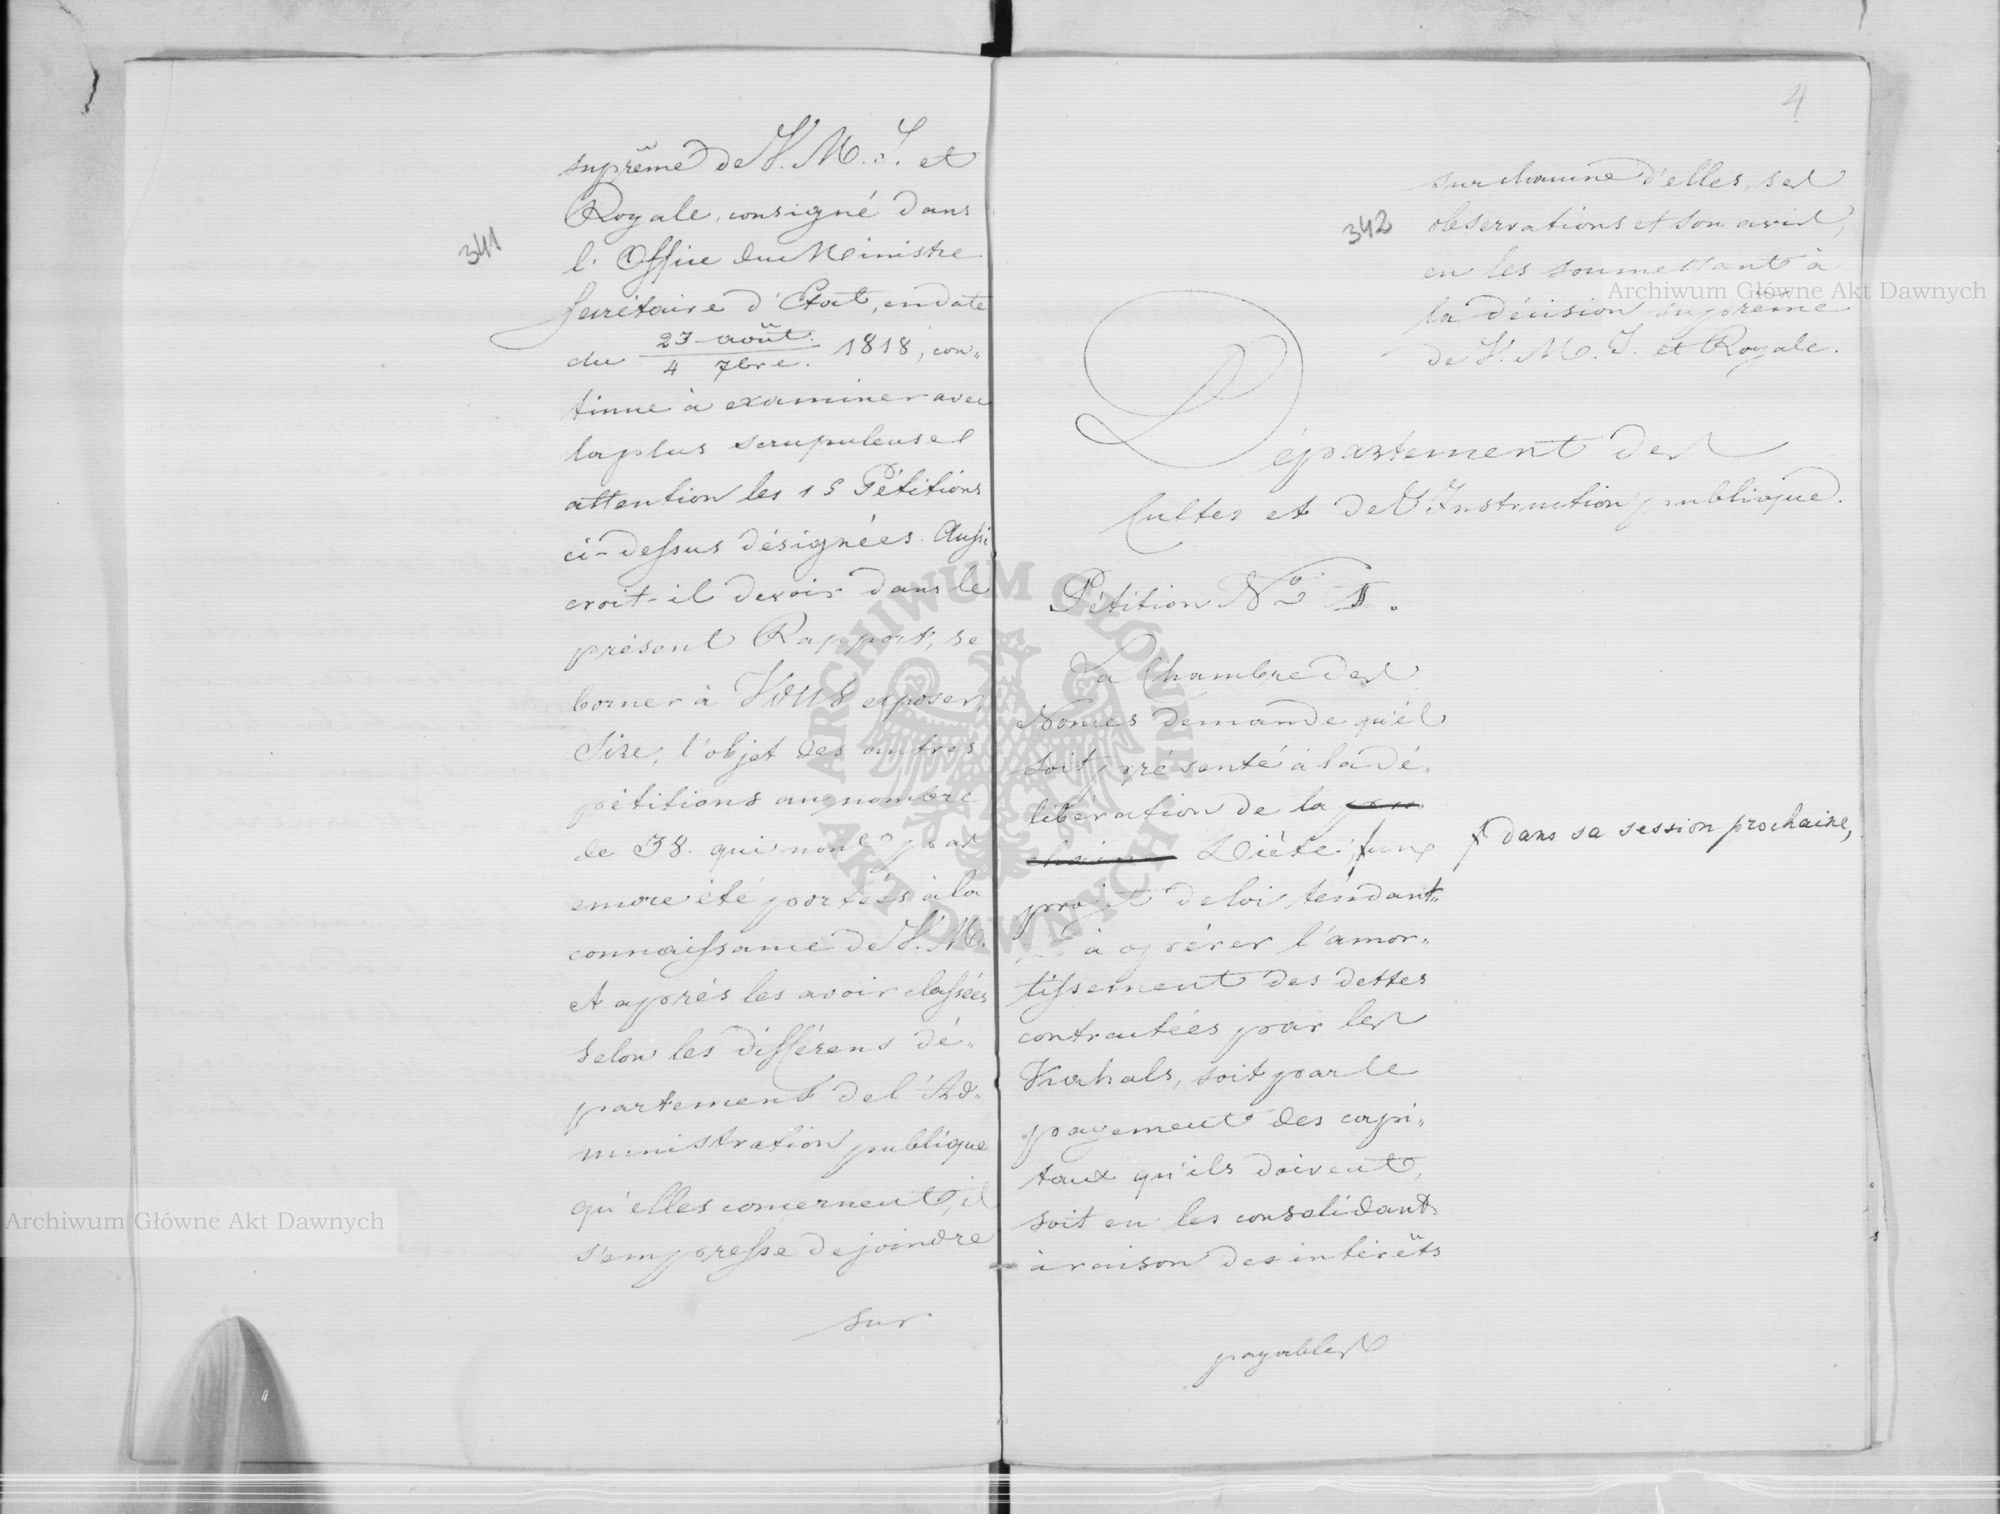 341
suprême de V. M. I. et
Royale, consigné dans
l'Office du Ministre
Secrétaire d'Etat, en date
du 23 août / 4 7bre. 1818, con„
tinue à examiner avec
la plus scrupuleuse
attention les 15 Pétitions
ci-dessus désignées. Aussi
croit-il devoir dans le
présent Rapport, se
borner à VOUS exposer,
Sire, l'objet des autres
pétitions au nombre
de 38. qui n'ont pas
encore été portées à la
connaissance de V. M.
et après les avoir classées
selon les différens dé„
partemens de l'Ad„
ministration publique
qu'elles concernent, il
s'empresse de joindre
sur
4
342
sur chacune d'elles, ses
observations et son avis,
en les soumettant à
la décision suprême
de V. M. I. et Royale.
Département des
Cultes et de l'Instruction publique.
Pétition No 1.
La Chambre des
Nonces demande qu'il
soit présenté à la dé„
libération de la pro„
chaine Diète, ƒ un
ƒ dans sa session prochaine,
projet de loi tendant„
à opérer l'amor„
tissement des dettes
contractées par les
Kahals, soit par le
payement des capi„
taux qu'ils doivent,
soit en les consolidant
à raison des intérêts
payables
Archiwum Główne Akt Dawnych
Archiwum Główne Akt Dawnych
ARCHIWUM GŁÓWNE AKT DAWNYCH